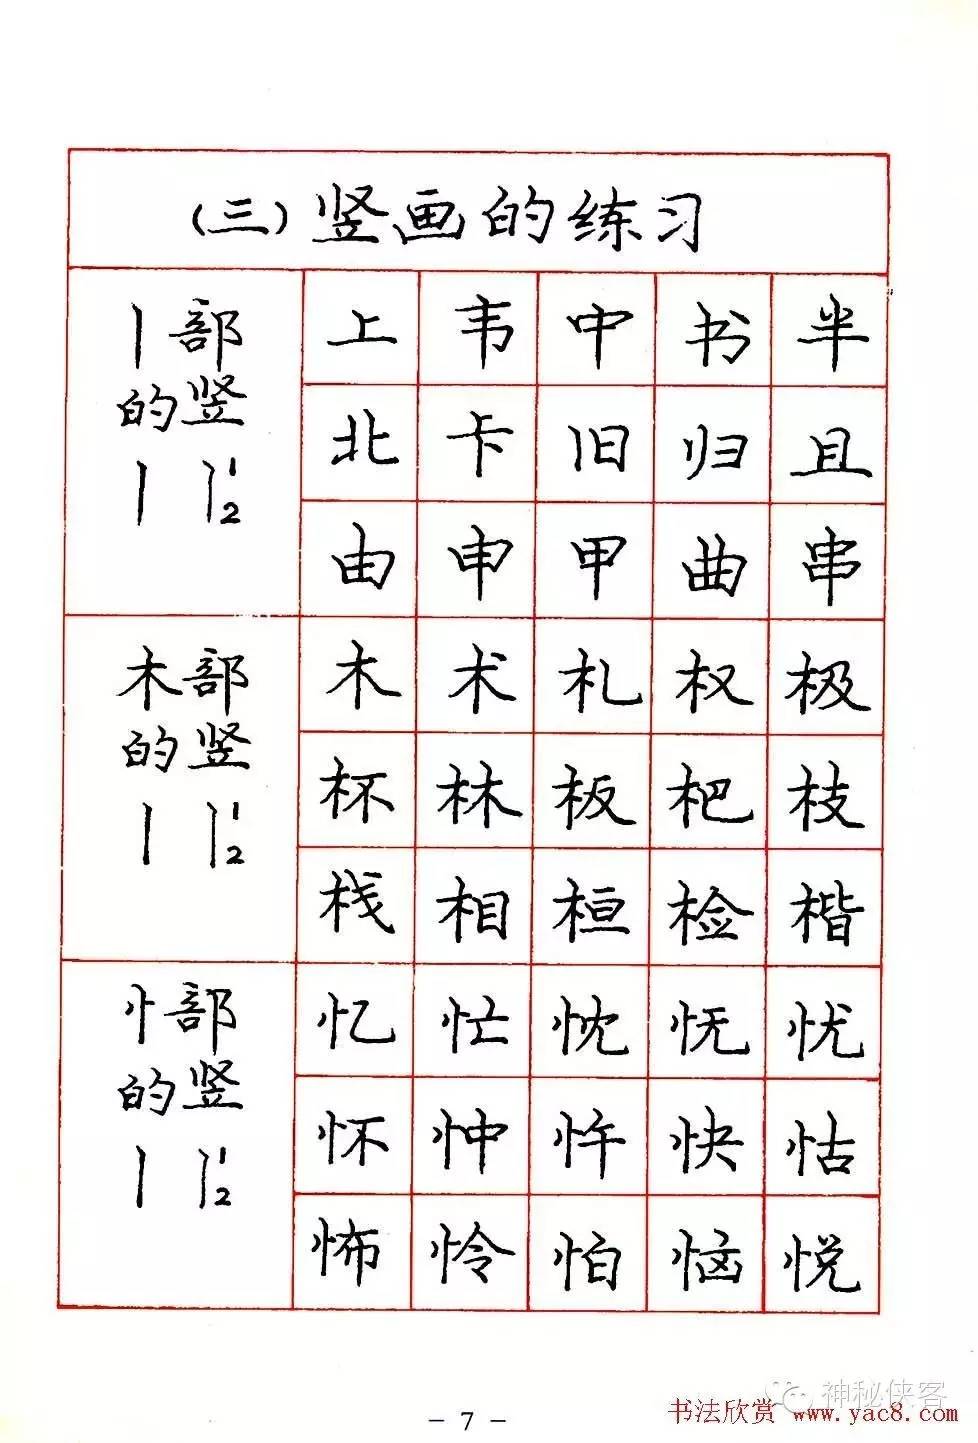 （三）竖画的练习
丨部的竖
丨 丨1 2
上 韦 中 书 半
北 卡 旧 归 且
由 申 甲 曲 串
木部的竖
丨 丨1 2
木 术 札 权 极
杯 林 板 杷 枝
栈 相 桓 检 楷
忄部的竖
丨 丨1 2
忆 忙 忱 怃 忧
怀 忡 忤 快 怙
怖 怜 怕 恼 悦
神秘侠客
书法欣赏 www.yac8.com
- 7 -